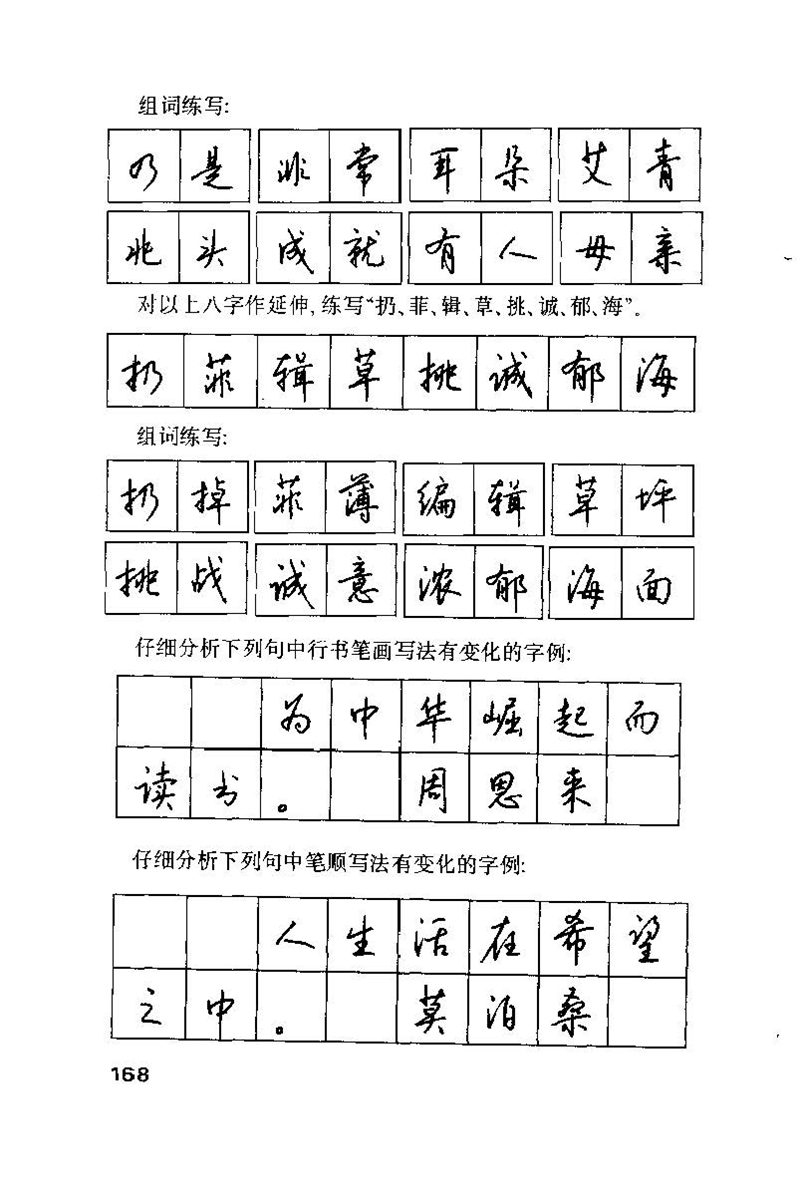 组词练写:
乃是 非常 耳朵 艾青
兆头 成就 有人 母亲
对以上八字作延伸,练写“扔、菲、辑、草、挑、诚、郁、海”。
扔菲辑草挑诚郁海
组词练写:
扔掉 菲薄 编辑 草坪
挑战 诚意 浓郁 海面
仔细分析下列句中行书笔画写法有变化的字例:
为中华崛起而
读书。 周恩来
仔细分析下列句中笔顺写法有变化的字例:
人生活在希望
之中。 莫泊桑
168